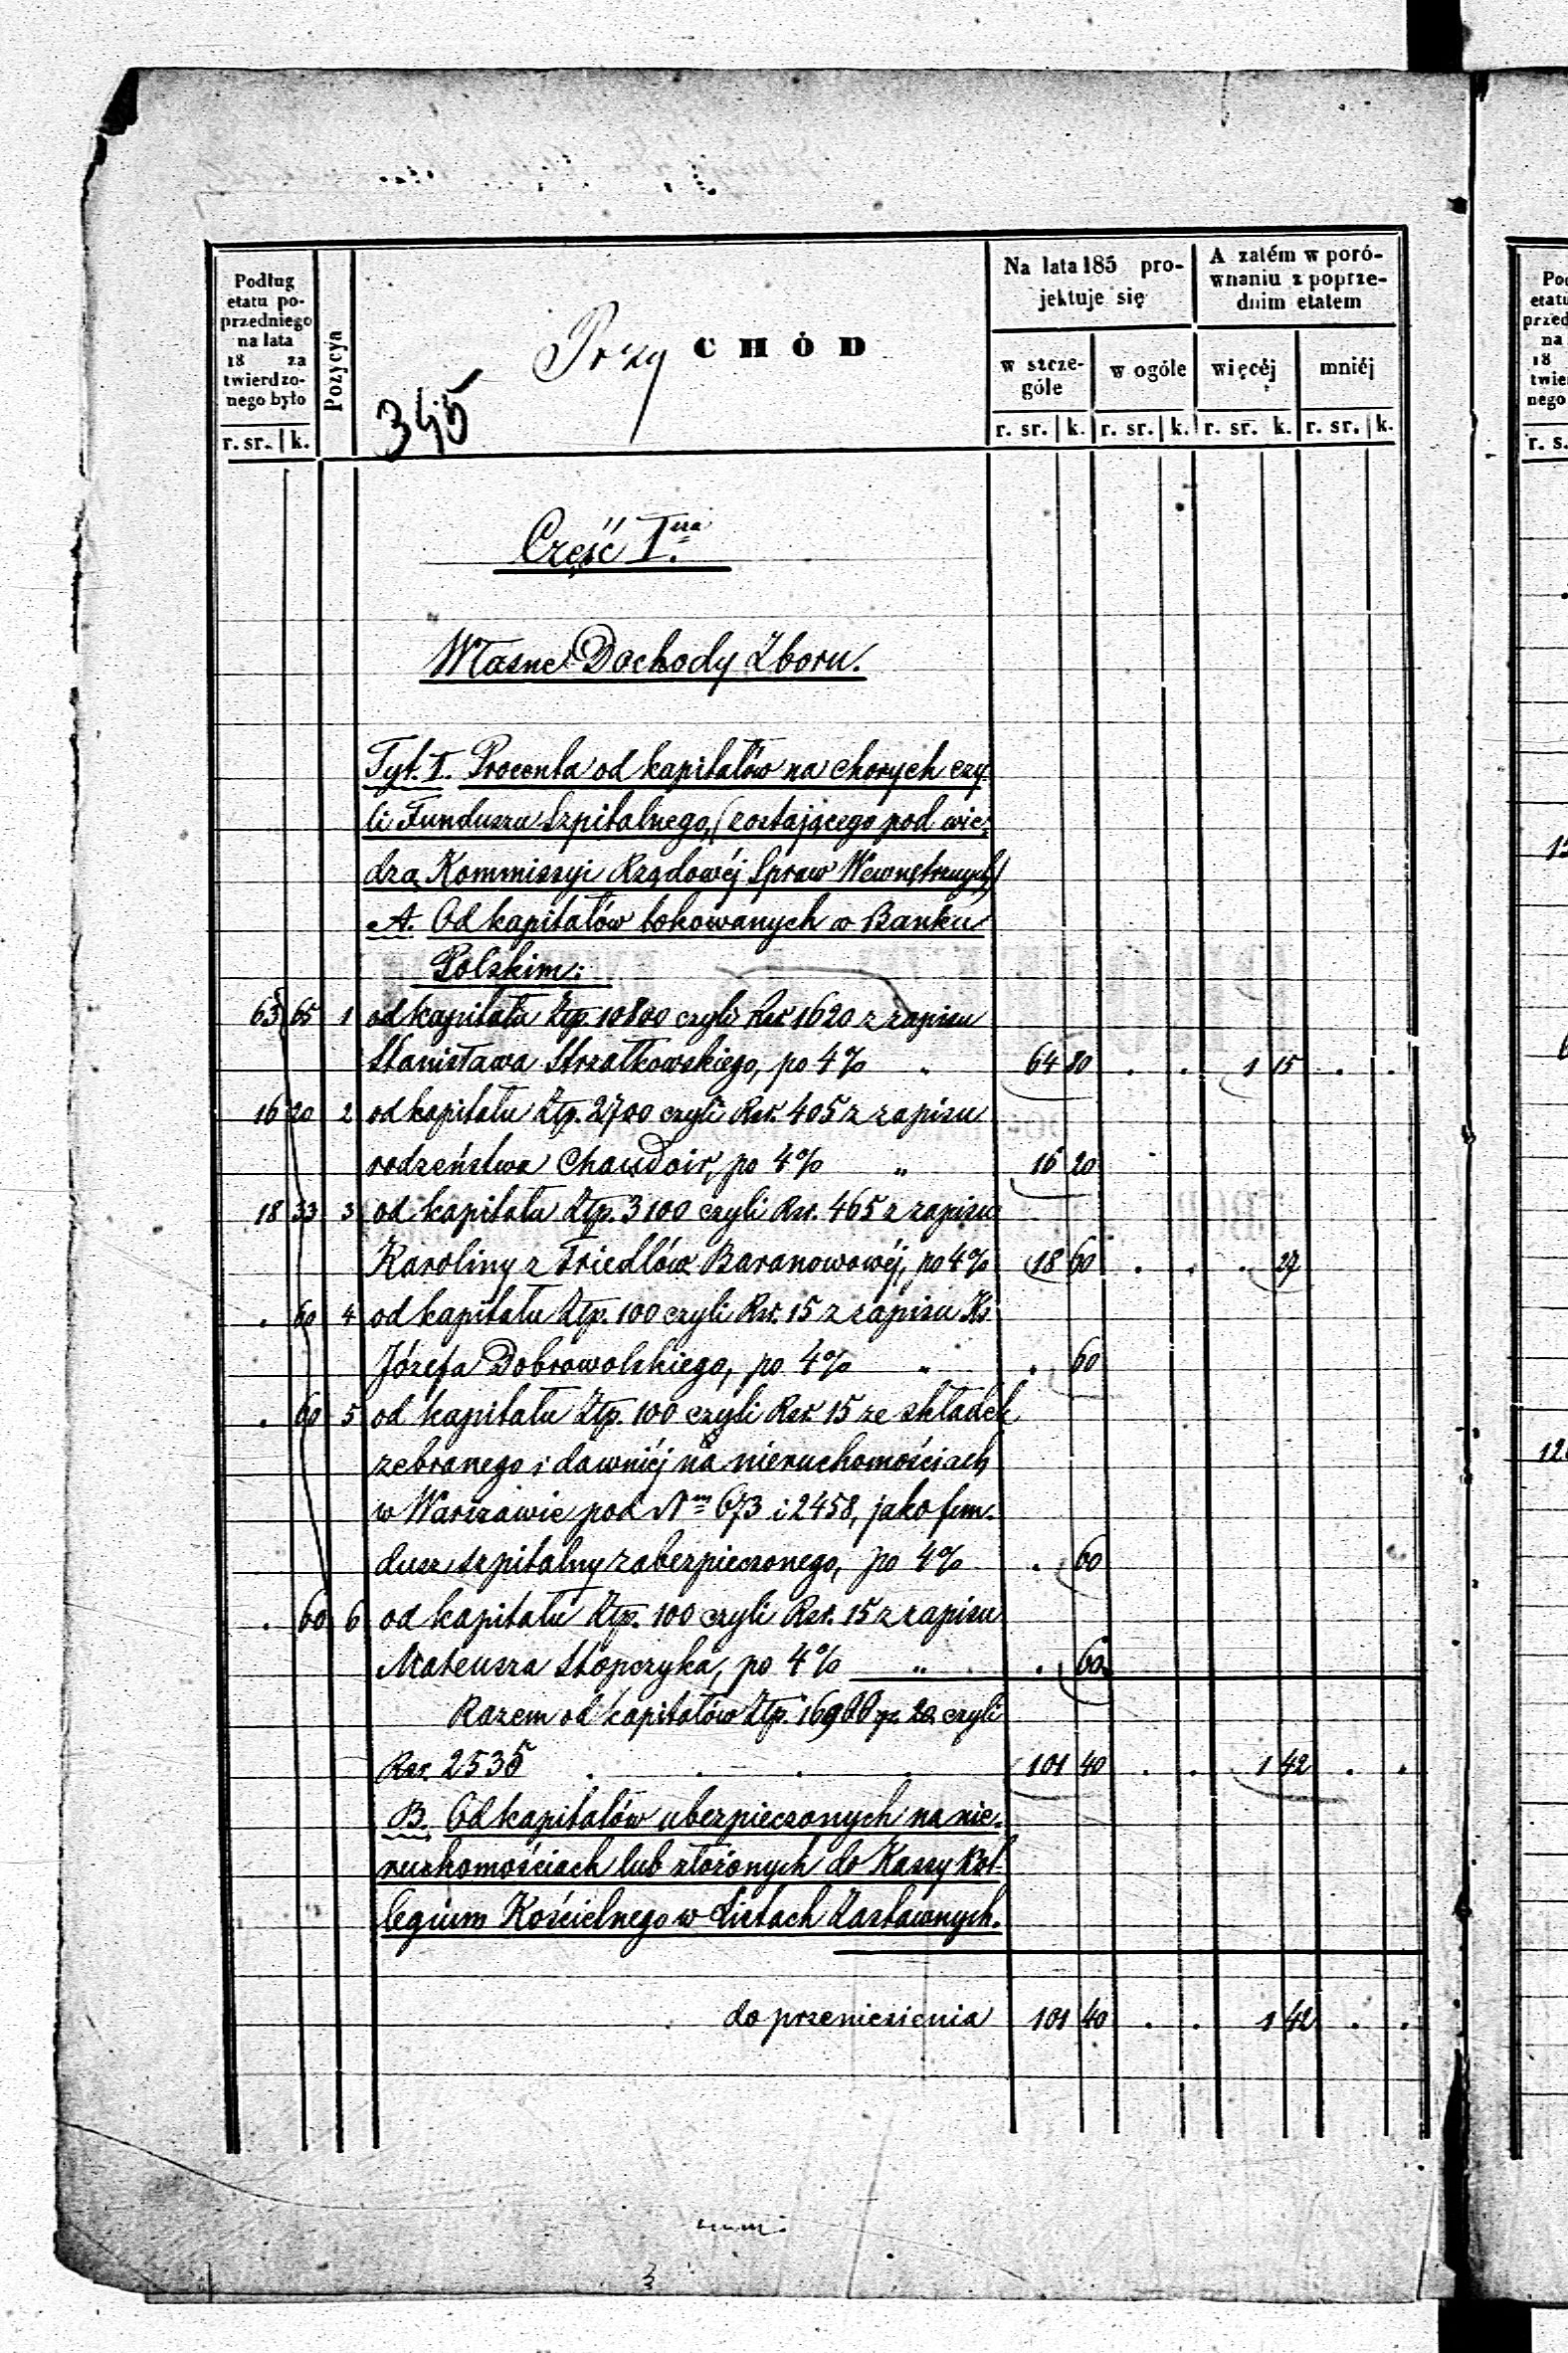 Podług etatu poprzedniego na lata 18 za twierdzonego było
r. sr. k.
Pozycya
Przy CHÓD
345
Na lata 185 projektuje się
w szczególe
w ogóle
A zatém w porównaniu z poprzednim etatem
więcéj
mniéj
r. sr. k. r. sr. k. r. sr. k. r. sr. k.
Część I.sza
Własne Dochody Zboru.
Tyt. I. Procenta od kapitałów na chorych czy-
li Funduszu Szpitalnego, (zostającego pod wie-
dzą Kommissyi Rządowéj Spraw Wewnętrznych)
A. Od kapitałów lokowanych w Banku
Polskim:
63 65 1 od kapitału Złp. 10800 czyli Rsr. 1620 z zapisu
Stanisława Strzałkowskiego, po 4% " 64 80 . . 1 15 . .
16 20 2 od kapitału Złp. 2700 czyli Rsr. 405 z zapisu
rodzeństwa Chaudoir, po 4% " 16 20
18 33 3 od kapitału Złp. 3100 czyli Rsr. 465 z zapisu
Karoliny z Friedlów Baranowowéj, po 4% 18 60 . . . 27
. 60 4 od kapitału Złp. 100 czyli Rsr. 15 z zapisu Ks
Józefa Dobrowolskiego, po 4% " . 60
. 60 5 od kapitału Złp. 100 czyli Rsr. 15 ze składek
zebranego i dawniéj na nieruchomościach
w Warszawie pod Nm 673 i 2458, jako fun-
dusz szpitalny zabezpieczonego, po 4% . 60
. 60 6 od kapitału Złp. 100 czyli Rsr. 15 z zapisu
Mateusza Stopczyka, po 4% " . 60
Razem od kapitałów Złp. 16900 czyli
Rsr. 2535 . . . . 101 40 . . 1 42 . .
B. Od kapitałów ubezpieczonych na nie-
ruchomościach lub złożonych do Kassy Kol-
legium Kościelnego w Listach Zastawnych.
do przeniesienia 101 40 . . 1 42 . .